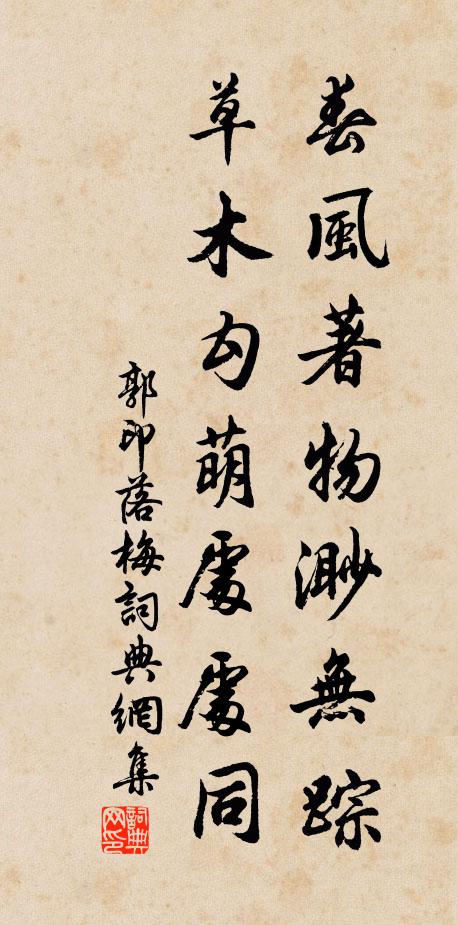 春風著物渺無踪
草木勾萌處處同
郭印落梅詞典網集
詞典網印